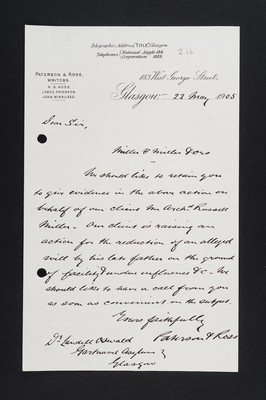 Telegraphic Address, "TITLE", Glasgow
Telephones { National Argyle 158.
Corporation 1253.
PATERSON & ROSS,
WRITERS.
R. G. ROSS.
JAMES PATERSON.
JOHN
183 West George Street,
Glasgow, 22 May 1905
Dear Sir,
Miller v Miller & ors
We should like to retain you
to give evidence in the above action on
behalf of our client Mr Archd Russell
Miller. Our client is raising an
action for the reduction of an alleged
will by his late father on the ground
of facility & undue influence &c. We
should like to have a call from you
as soon as convenient on the subject.
Yours faithfully
Paterson & Ross
Dr Landell Oswald
Gartnavel Asylum
Glasgow